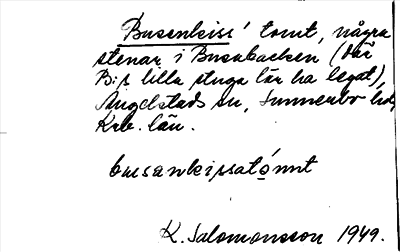 Busenkiss' tomt, några
stenar i Busabacken (där
B:s lilla stuga lär ha legat),
Angelstads sn, Sunnerbo hd,
Krb. län.
busankissatómt
K. Salomonsson 1949.